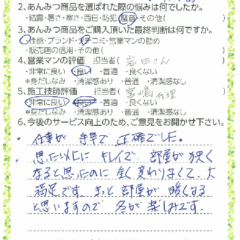 2.あんみつ商品を選ばれた際の悩みは何でしたか。
・結露・暑さ・寒さ・西日・防犯・騒音・その他(
3.あんみつ商品をご購入頂いた最終判断は何ですか。
・性能・ブランド・口コミ・営業マンの勧め
・販売店の信用・その他(
4.営業マンの評価 担当者(
・非常に良い・良い・普通・良くない
※身だしなみ ・清潔感あり ・普通 ・清潔感なし
5.施工技師評価 担当者(
・非常に良い・良い・普通・良くない
※身だしなみ ・清潔感あり ・普通 ・清潔感なし
6.今後のサービス向上のため、ご意見をお聞かせ下さい。
仕事が 丁寧で 正確でした。
思った以上に キレイで、部屋が狭く
なると思ったのに 全く変わりなくて、大
満足です。きっと 部屋が 暖くなる
と思いますので 冬が 楽しみです。